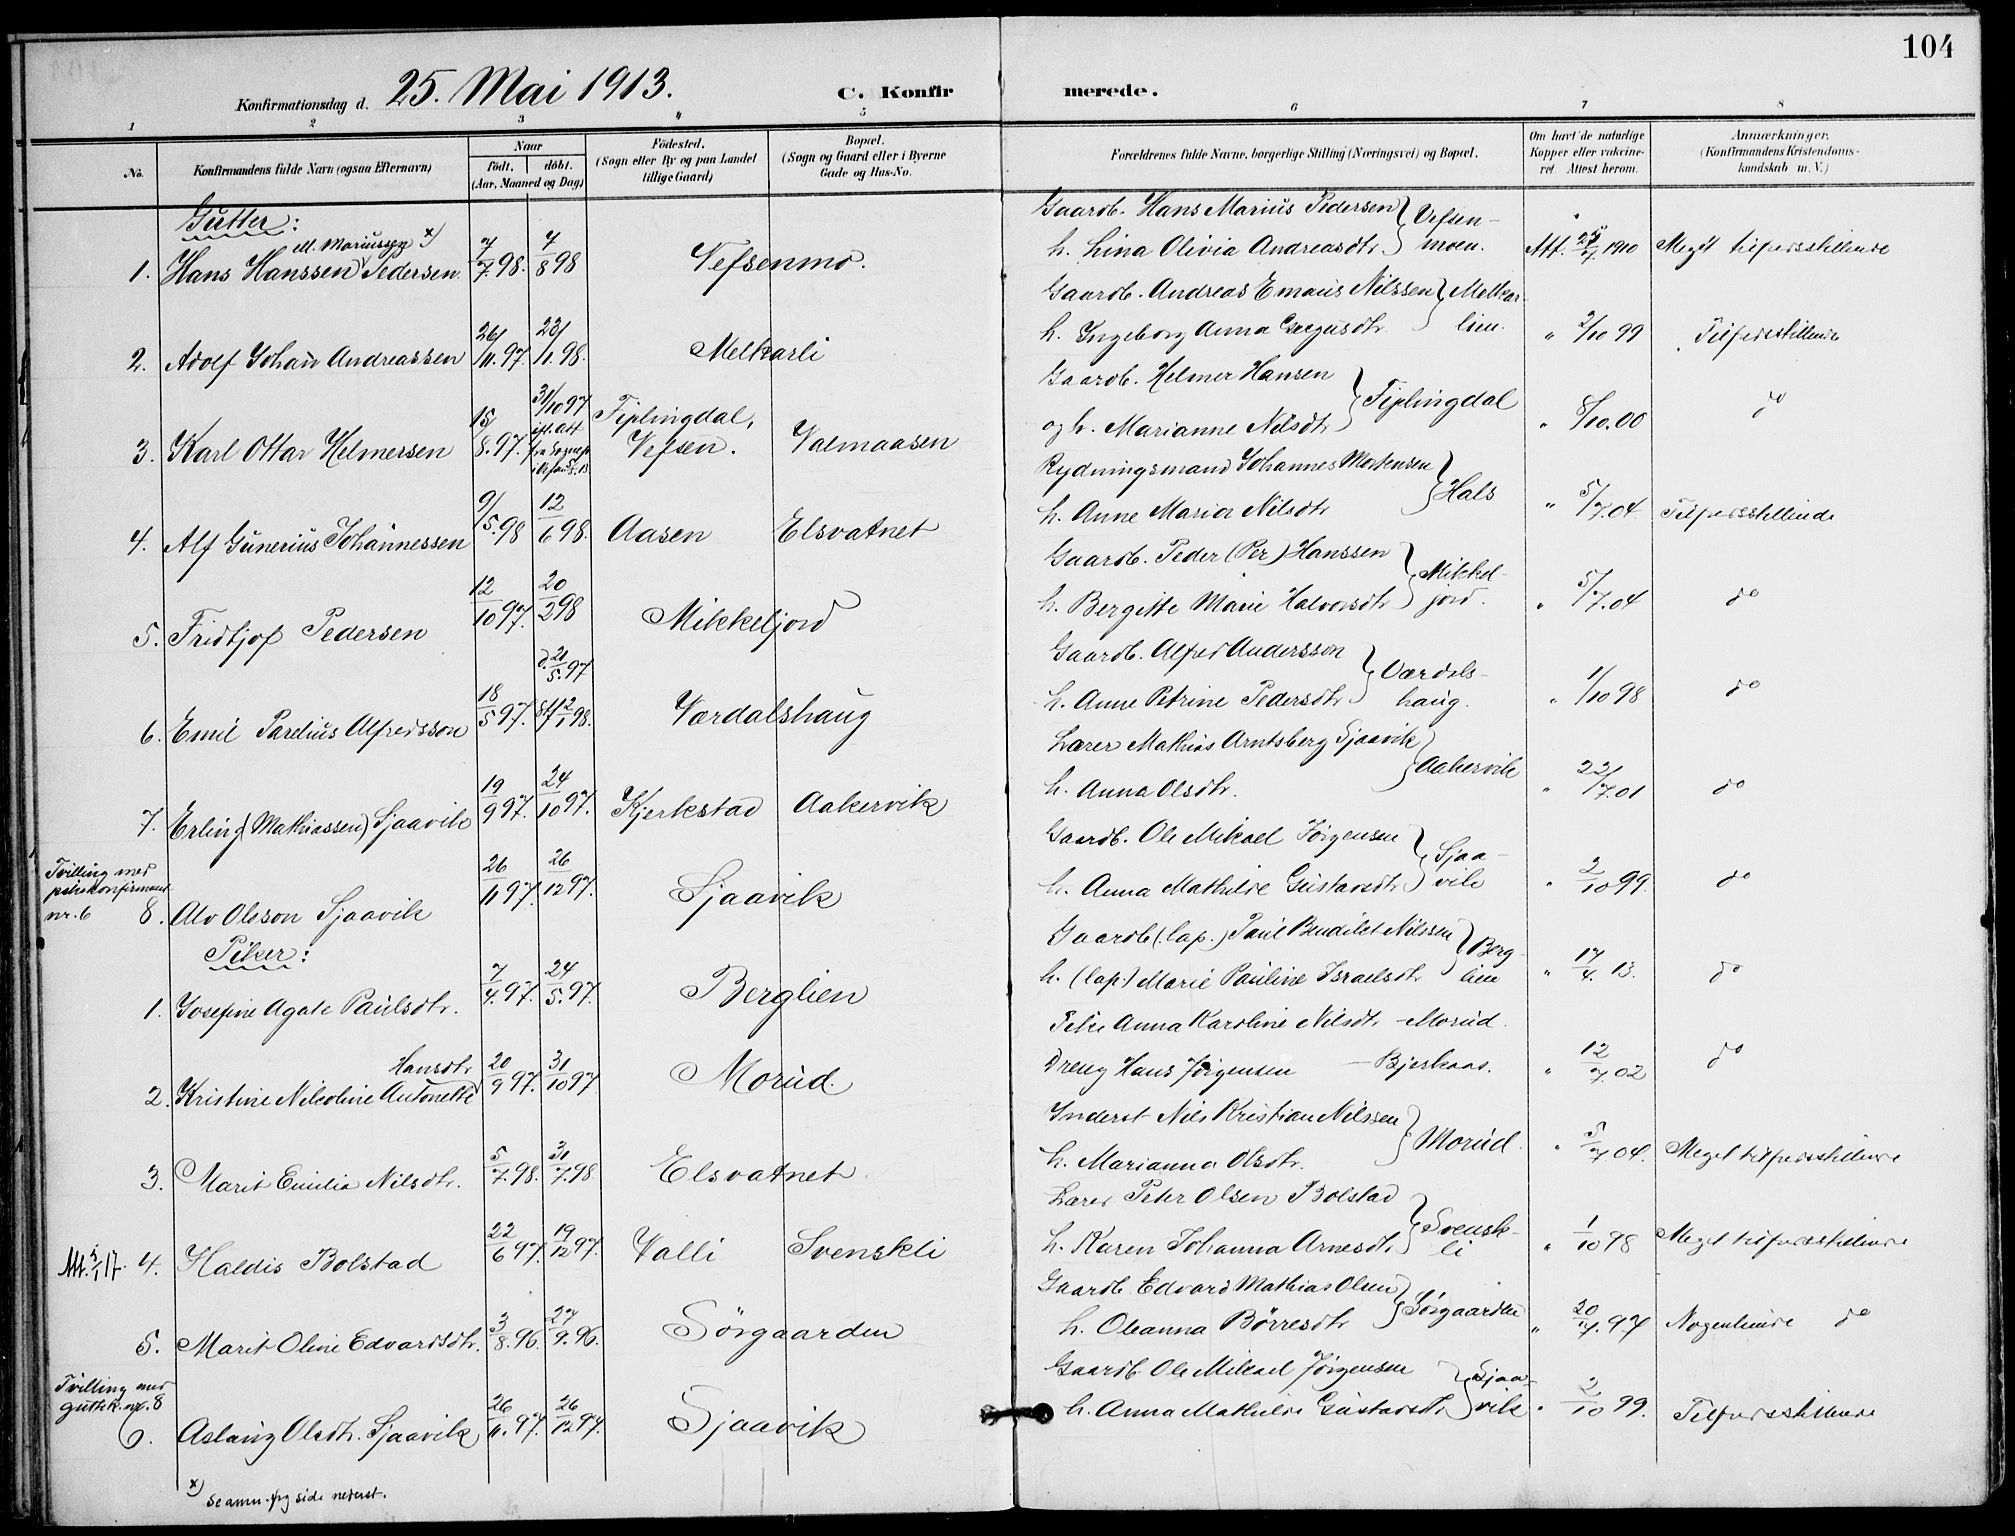 104
Konfirmationsdag d. 25. Mai 1913. C. Konfir merede.
1 2 3 4 5 6 7 8
No. Konfirmandens fulde Navn (ogsaa Efternavn) Naar født. døbt. (Aar, Maaned og Dag) Fødested. (Sogn eller By og paa Landet tillige Gaard) Bopæl. (Sogn og Gaard eller i Byerne Gade og Hus-No. Forældrenes fulde Navne, borgerlige Stilling (Næringsvei) og Bopæl. Om havt de naturlige Kopper eller vakcineret. Attest herom. Anmærkninger. (Konfirmandens Kristendomskundskab m. V.)
Gutter:
M. Mariussøn x)
1. Hans Hanssen Pedersen. 7/7.98. 7/8 98 Vefsenmo. Gaardb. Hans Marius Pedersen h. Lina Olivia Andreasdtr. } Vefsenmoen. Att. 25/7 1910 Meget tilfredsstillende
2. Adolf Johan Andreassen 26/11.97. 23/1.98. Melkarli Gaardb. Andreas Emaus Nilssen h. Ingeborg Anna dtr. } Melkarlien. " 2/10 99 Tilfredsstillende
3. Karl Ottar Helmersen 15/8.97. 31/10 97 Fiplingdal, Vefsen. Valmaasen Gaardb. Helmer Hansen og h. Marianne Nilsdtr } Fiplingdal " 8/10.00 do
4. Alf Gunerius Johannessen 9/5.98 12/6 98. Aasen Elsvatnet Rydningsmand Johannes Mortensen h. Anne Maria Nilsdtr } Hals " 5/7.04 Tilfredsstillende
5. Fridtjof Pedersen 12/10 97. 20/2 98 Mikkeljord Gaardb. Peder (Per) Hanssen h. Bergitte Marie Halvorsdtr } Mikkeljord. " 5/7.04 do
6. Emil Parelius Alfredsson 18/5 97. d. 21/5.97 St. 12/1 98. Værdalshaug Gaardb. Alfred Andersson h. Anne Petrine Pedersdtr } Værdalshaug. " 1/10 98 do
7. Erling (Mathiassen) Sjaavik 19/9 97. 24/10 97. Kjerkstad Aakervik Lærer Mathias Arntsberg Sjaavik h. Anna Olsdtr. } Aakervik " 22/7.01 do
Tvilling med pikekonfirmant nr. 6
8. Alv Olsson Sjaavik 26/11 97. 26/12 97. Sjaavik Gaardb. Ole Mikael Jørgensen h. Anna Mathilde Gustavsdtr } Sjaavik " 2/10 99. do
Piker:
1. Josefine Agate Paulsdtr. 7/4.97. 24/5.97. Berglien Gaardb (lap.) Paul Bendikt Nilssen h. (lap.) Marie Pauline Israelsdtr } Berglien " 17/4. 13. do
2. Kristine Nikoline Antonette Hansdtr 20/9 97. 31/10 97 Morud. Pike Anna Karoline Nilsdtr - Morud. Dreng Hans Jørgensen - Bjerkaas. " 12/7.02 do
3. Marit Emilia Nilsdtr. 5/7.98. 31/7.98 Elsvatnet Inderst Nils Kristian Nilssen h. Marianna Olsdtr. } Morud. " 5/7.04. Meget tilfredsstillende
Att. 5/1 17. 4. Haldis Bolstad 22/6 97. 19/12 97. Valli Svenskli Lærer Peter Olsen Bolstad h. Karen Johanna Arnesdtr } Svenskli " 1/10 98 Meget tilfredsstillende
5. Marit Oline Edvardsdtr. 3/8.96. 27/9.96. Sørgaarden Gaardb. Edvard Mathias Olsen h. Oleanna Børresdtr } Sørgaarden " 20/7.97 Nogenlunde do
Tvilling med guttek. nr. 8
6. Aslaug Olsdtr. Sjaavik 26/11.97. 26/12 97. Sjaavik Gaardb. Ole Mikael Jørgensen h. Anna Mathilde Gustavsdtr } Sjaavik " 2/10 99. Tilfredsstillende
x) se anm. frg side nederst.